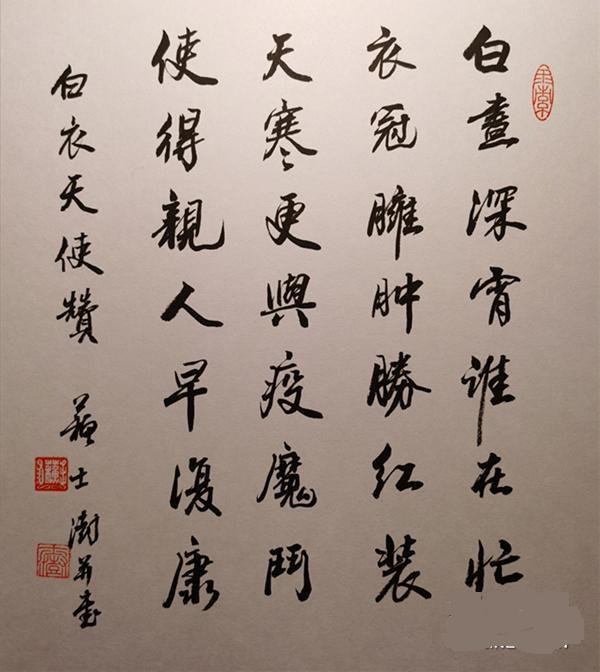 白晝深宵誰在忙
衣冠臃肿勝红装
天寒更與疫魔鬥
使得親人早復康
白衣天使贊 蘇士澍并書